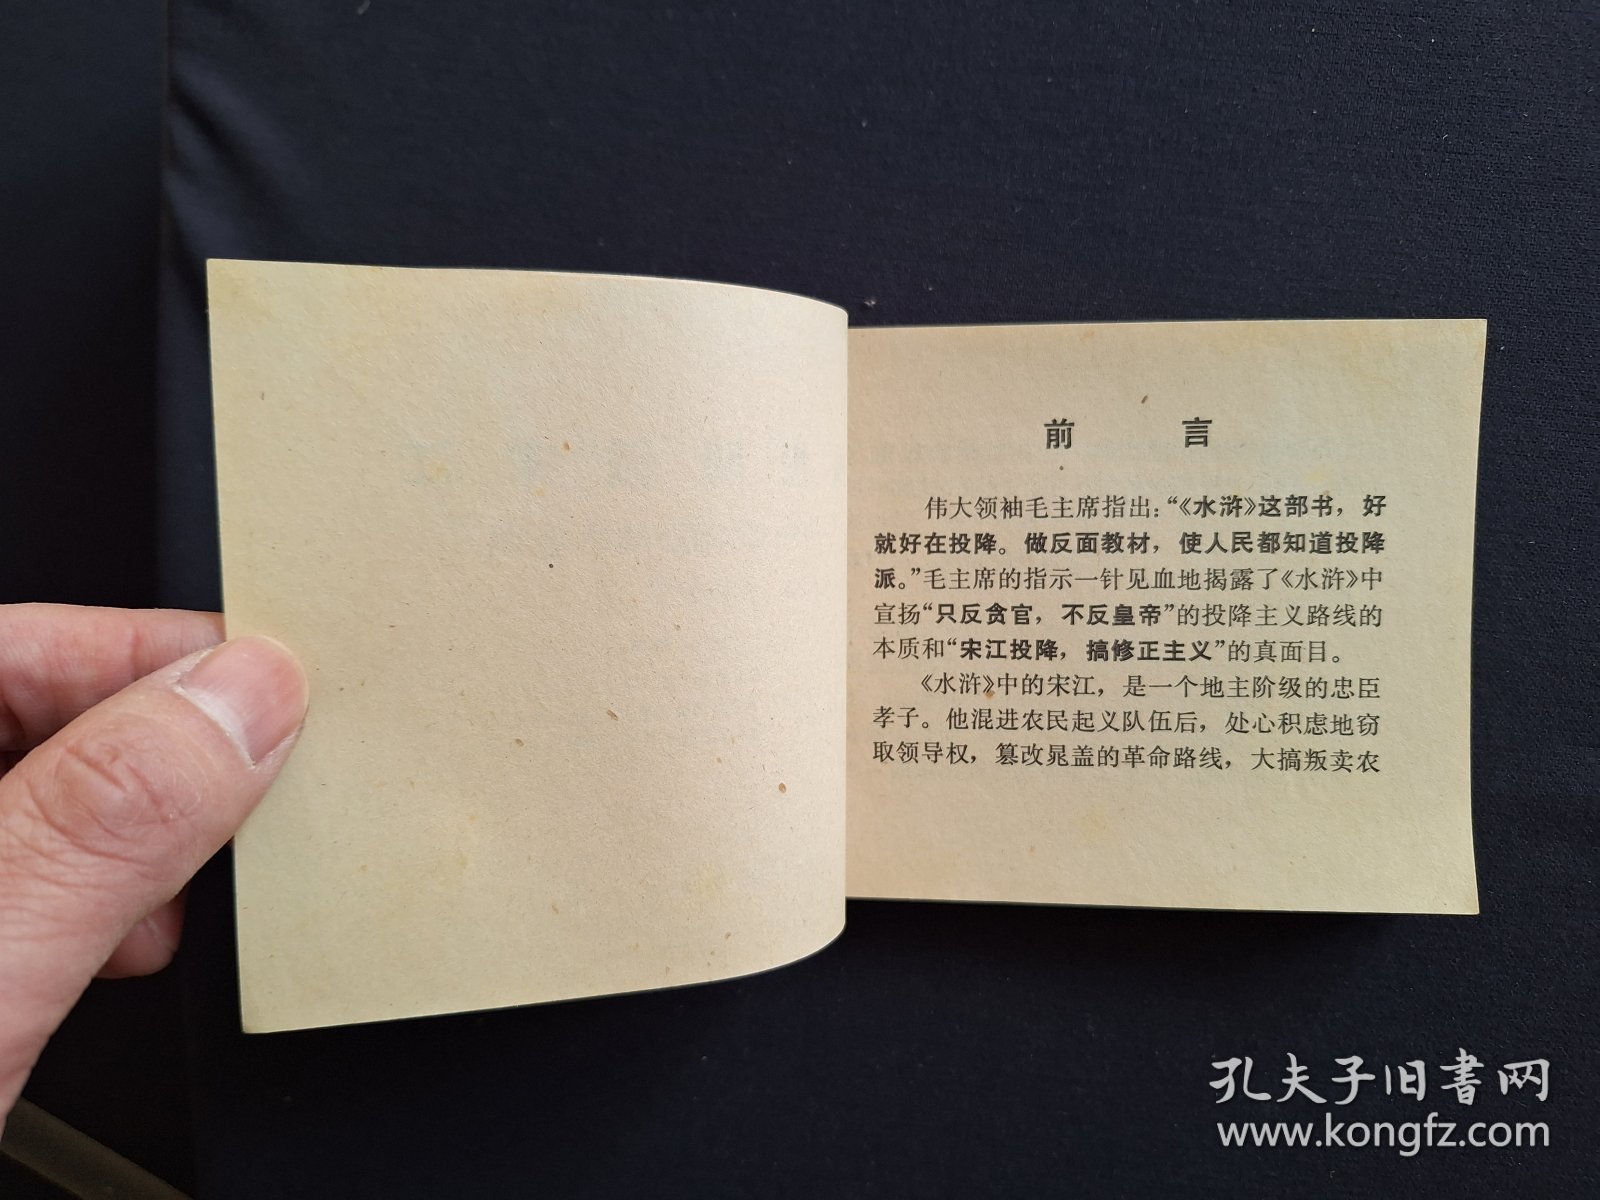 前言
伟大领袖毛主席指出：“《水浒》这部书，好
就好在投降。做反面教材，使人民都知道投降
派。”毛主席的指示一针见血地揭露了《水浒》中
宣扬“只反贪官，不反皇帝”的投降主义路线的
本质和“宋江投降，搞修正主义”的真面目。
《水浒》中的宋江，是一个地主阶级的忠臣
孝子。他混进农民起义队伍后，处心积虑地窃
取领导权，篡改晁盖的革命路线，大搞叛卖农
孔夫子旧書网
www.kongfz.com